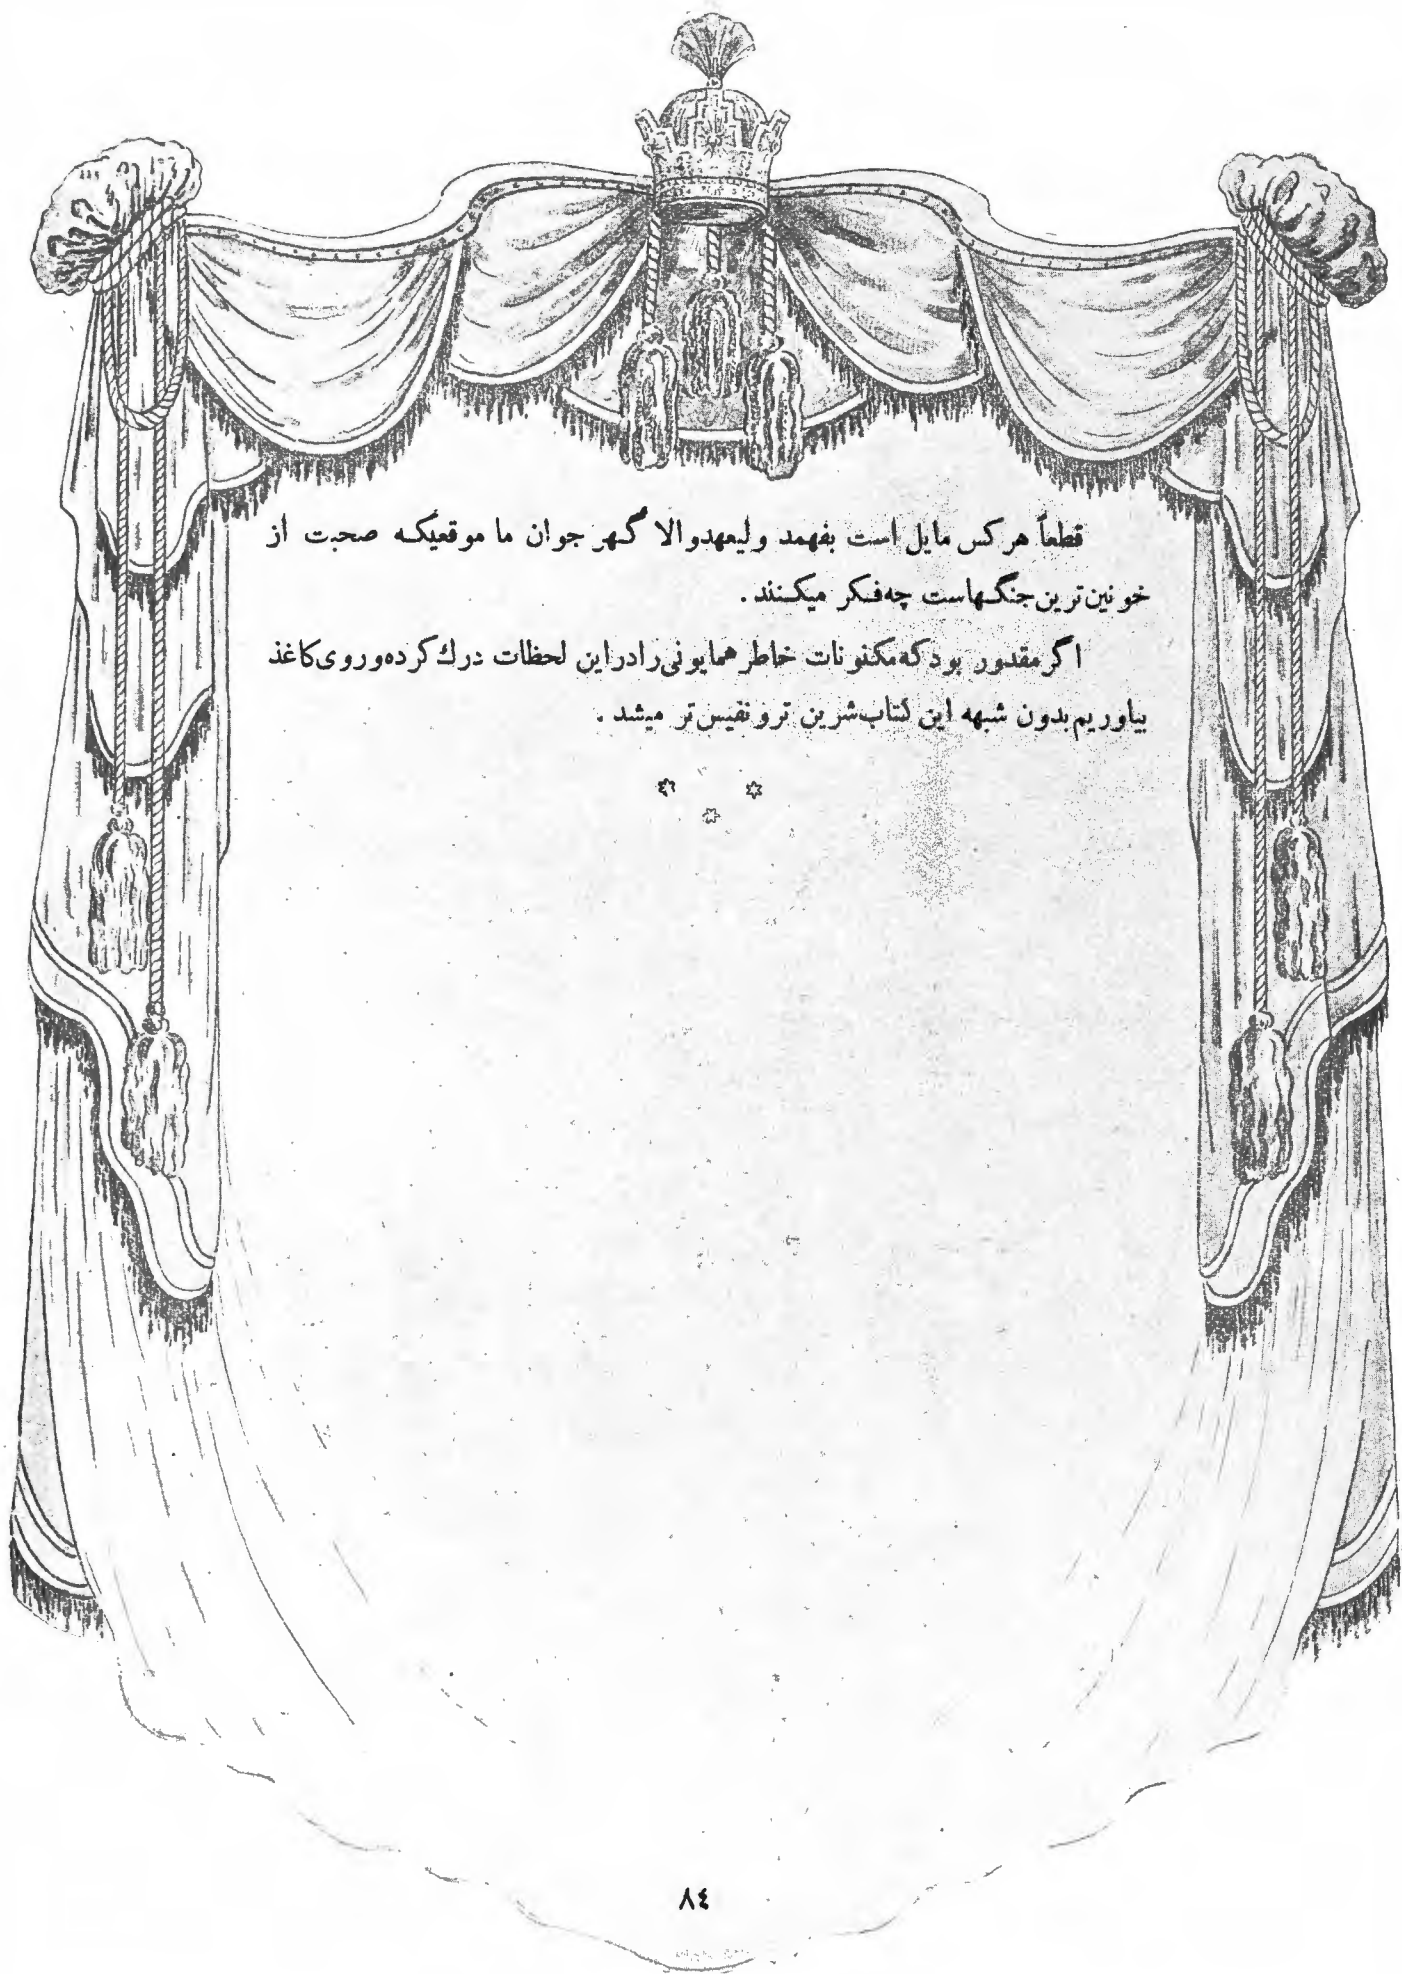 قطعاً هرکس مایل است بفهمد ولیعهد والا گهر جوان ما موقعیکه صحبت از
خونین‌ترین جنگهاست چه فکر میکنند .
اگر مقدور بود که مکنونات خاطر همایونی را در این لحظات درك کرده و روی کاغذ
بیاوریم بدون شبهه این کتاب شرین تر و نفیس تر میشد .
٨٤